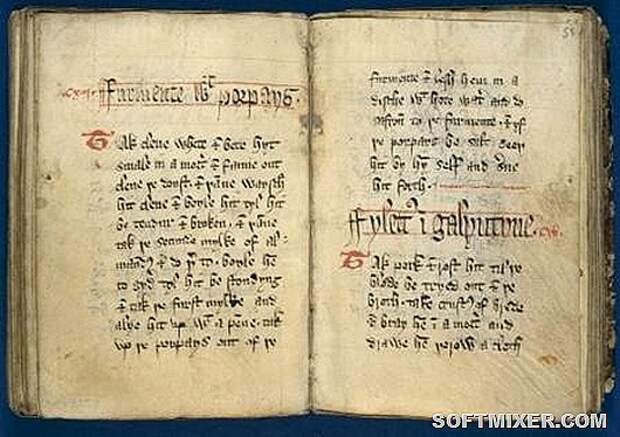 furmente wt porpays.
Tak clene whete & bete hyt
smale in a mort & fanne out
clene þe doust. & þane waysch
hit clene & boyle hit tyl hit
be tendur & broken. & þane
tak þe secunde mylke of al-
& do þto. boyle he
to syd tyl hit be stondyng
& tak þe furst mylke and
alye hit up wt a penne. tak
up þe porpays out of þe
55
furmente & lesh hem in a
dische wt hote wat and do
safron to þe furmente. & yf
þe porpays be salt seeþ
hit by hy self and sue
hit forth.
ffylett i galyntyne.
Tak pork & rost hit tyl þe
blode be tryed out & þe
broth. take crustes of brede
& bray he i a mort and
drawe he þorow a cloth
SOFTMIXER.COM